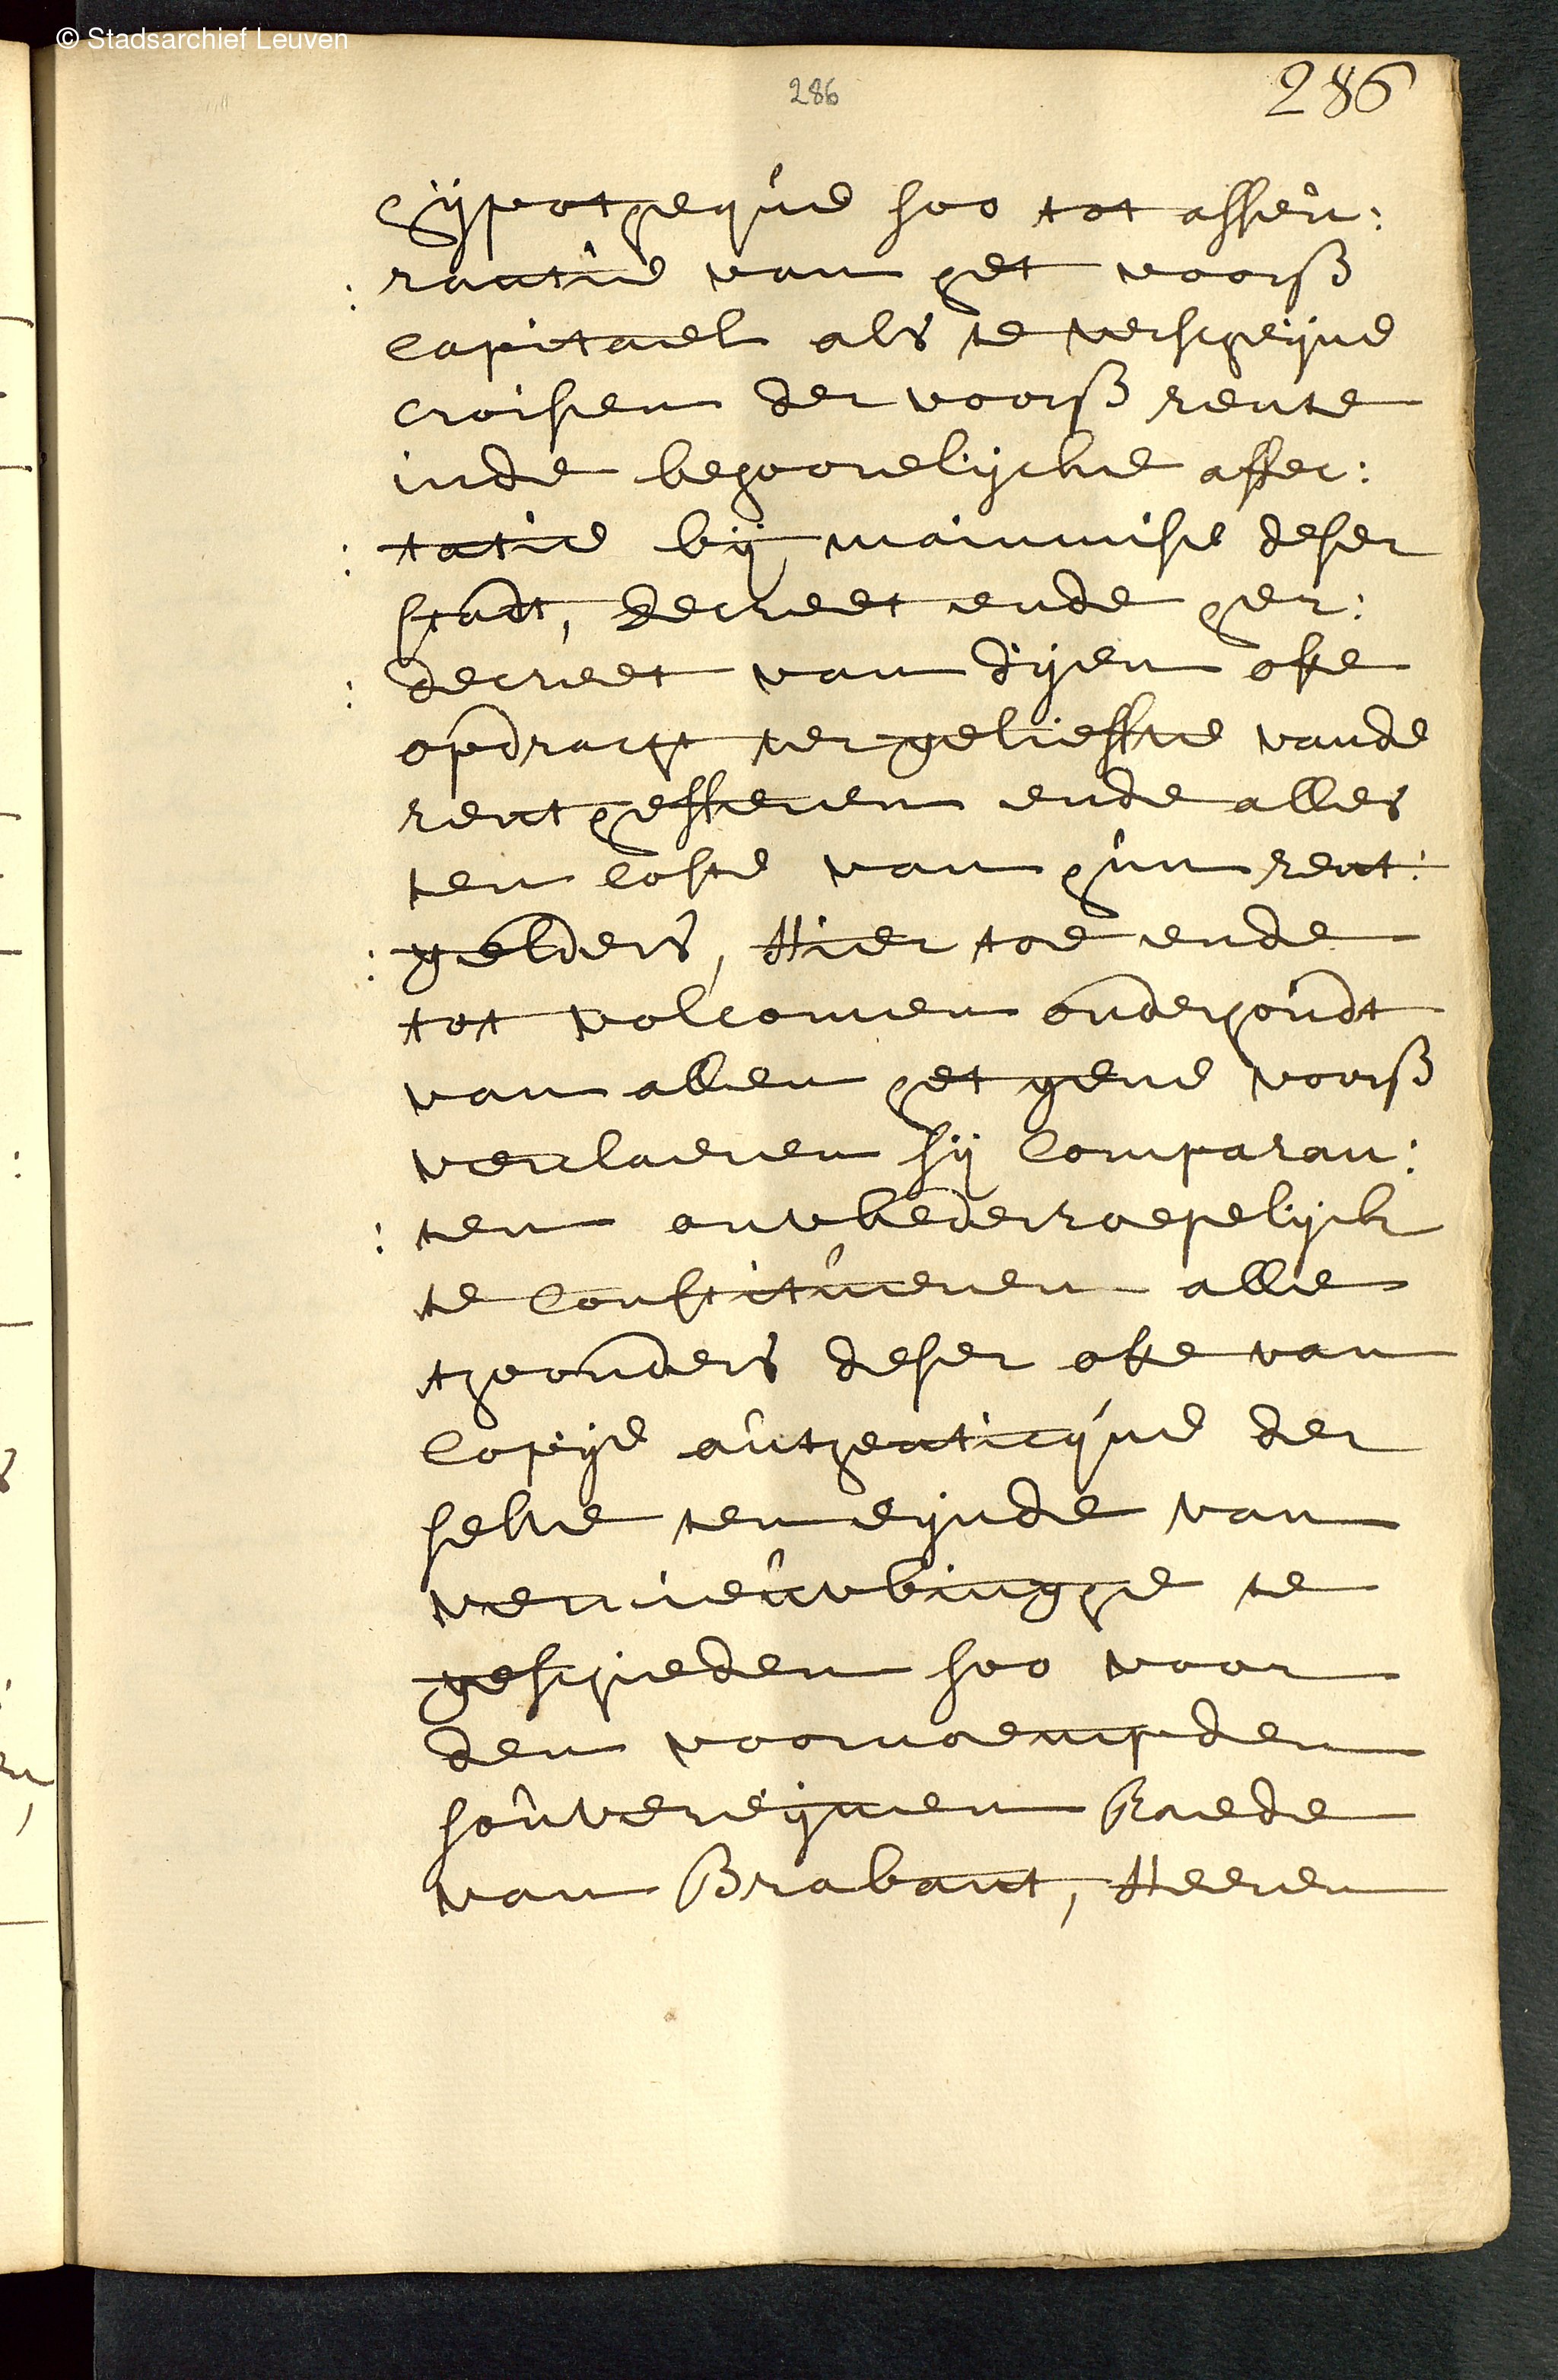 © Stadsarchief Leuven
286
286
hÿpothequé soo tot asseu:
:rantie van het voorß
capitael als te verscheijne
croisen der voorß rente
inde behoorelijcke affec:
:tatie bij mainmise deser
stadt, decreet ende her:
:decreet van dijen ofte
opdracht ter gelieffte vande
rentheffenen ende alles
ten coste van hun rent:
:gelders, Hier toe ende
tot volcomen onderhoudt
van allen het gene voorß
verclaeren sij Comparan:
:ten onwederroepelijck
te Constitueren alle
thoonders deser ofte van
Copije authenticque der
selve ten eijnde van
vernieuwinghe te
geschieden soo voor
den voornoempden
souvereijnen Raede
van Brabant, Heeren